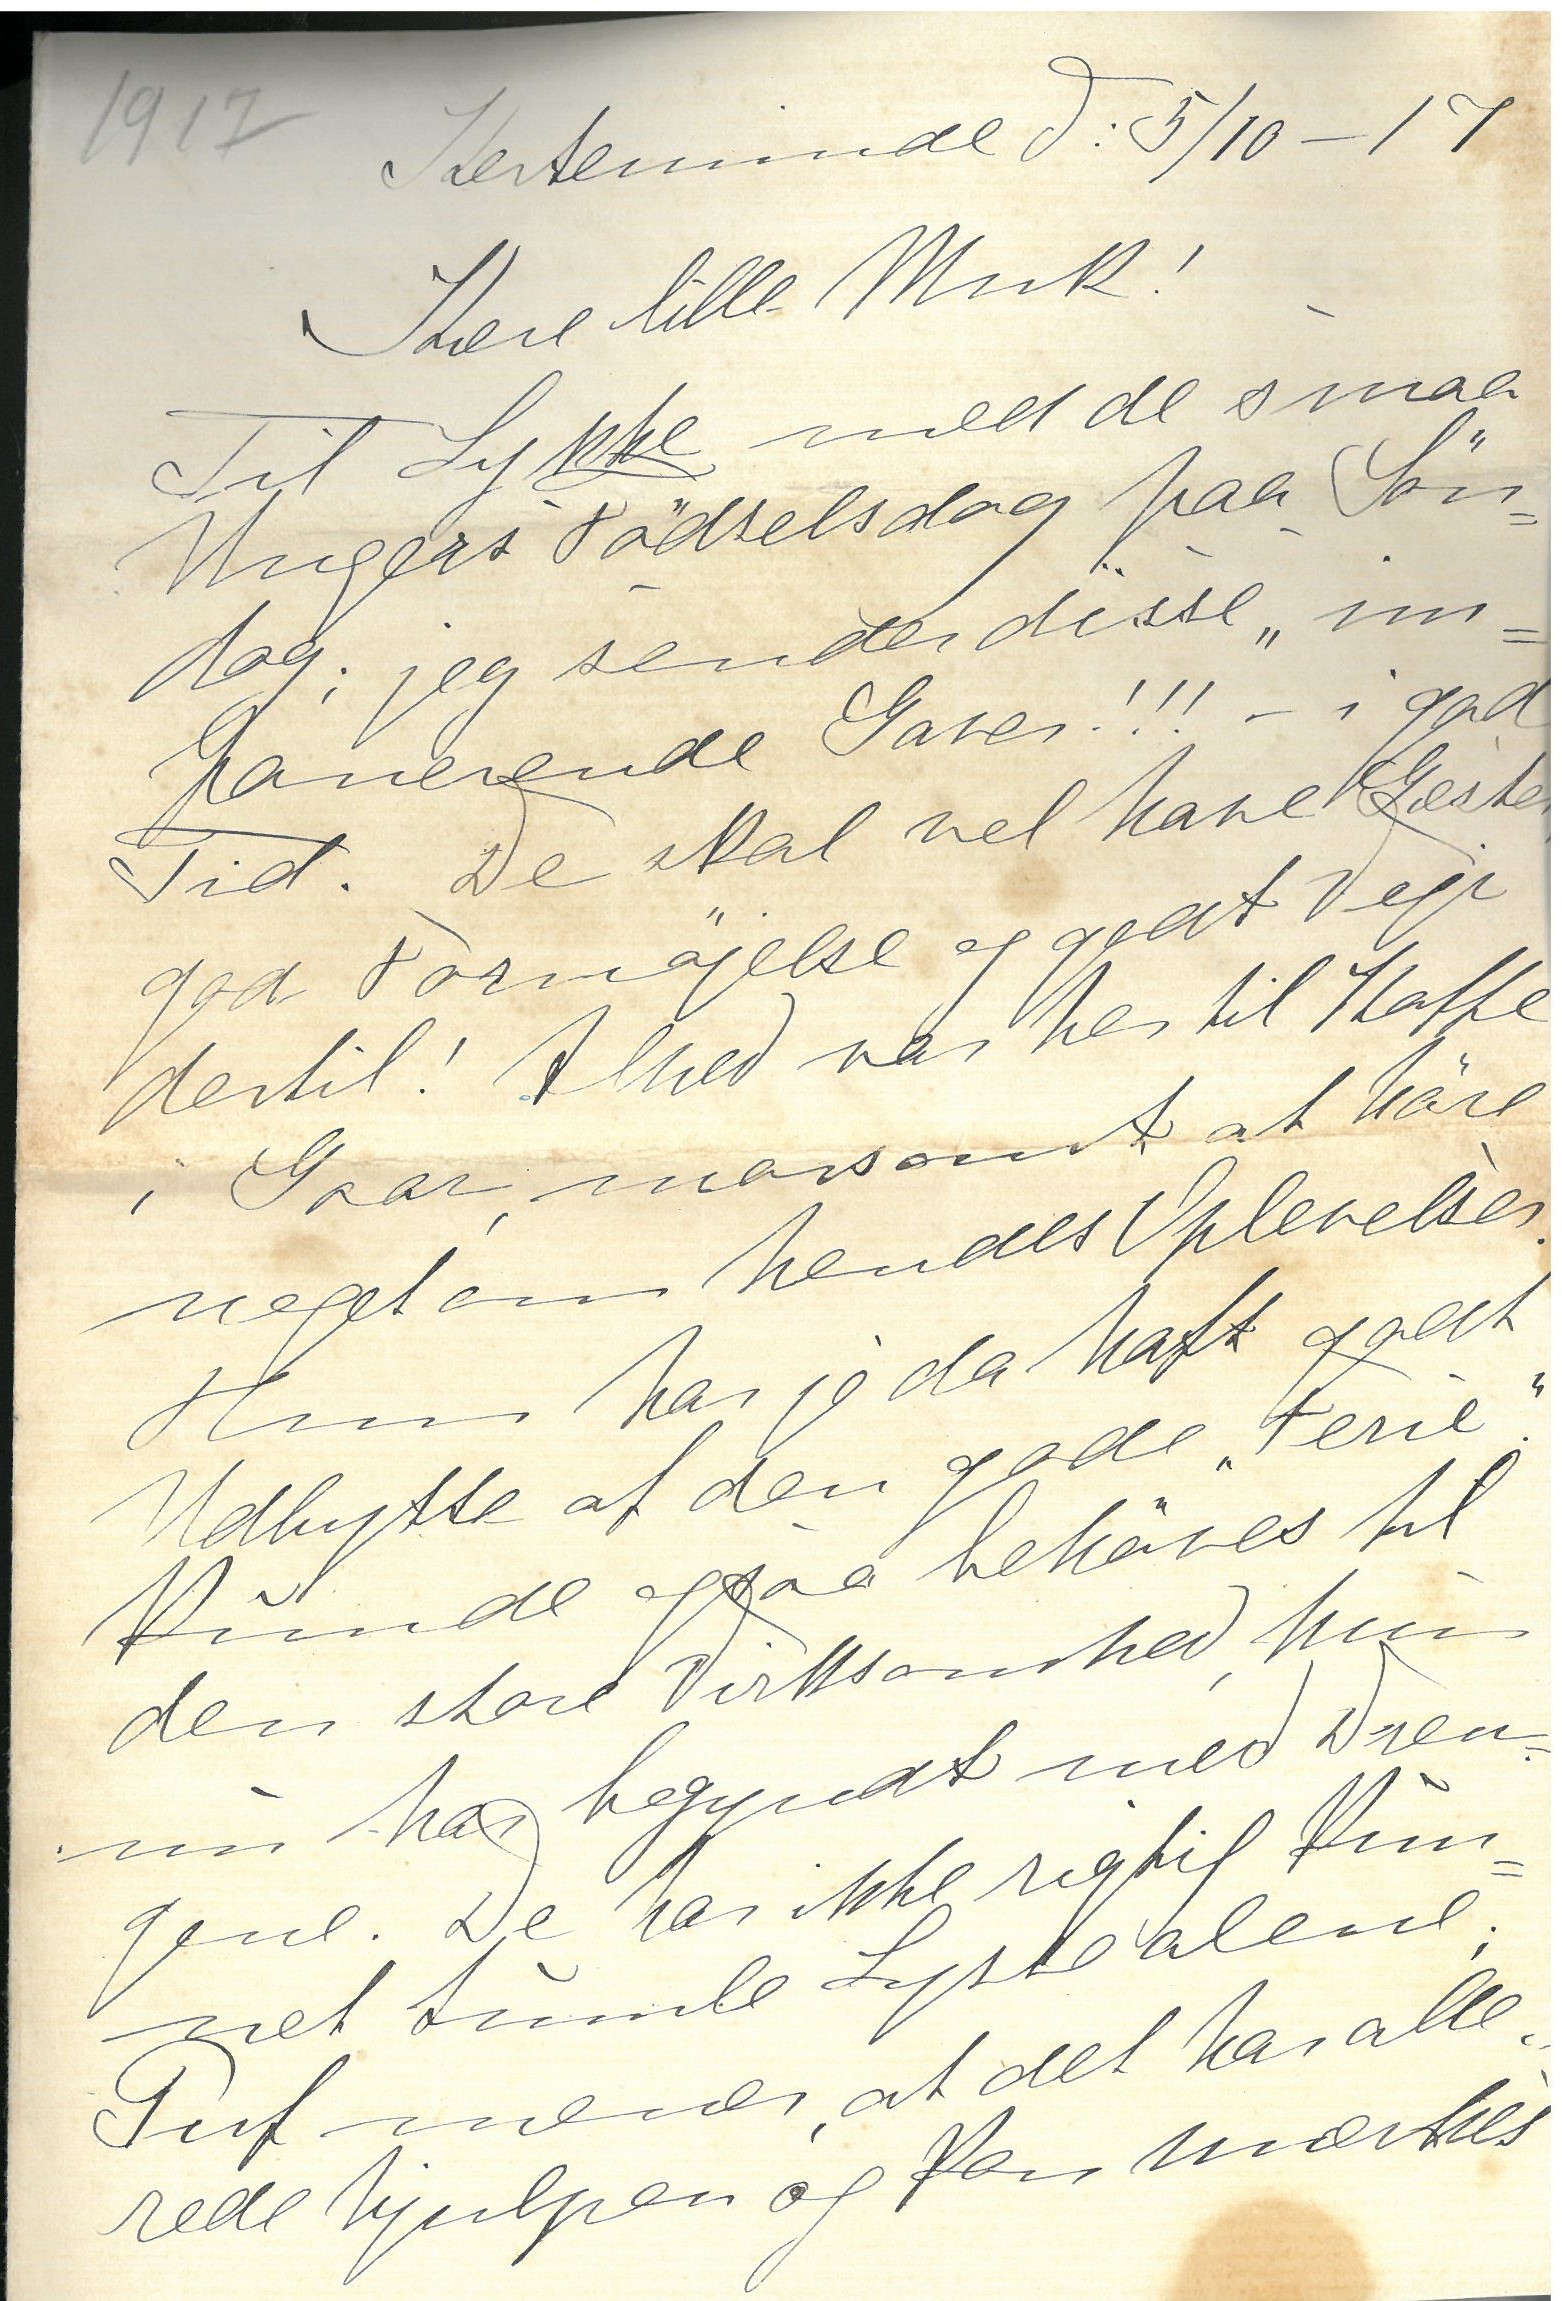 1917
Kerteminde d: 5/10 – 17
Kære lille Muk!
Til Lykke med de smaa
Ungers Födselsdag paa Sön=
dag; jeg sender disse „im=
ponerende Gaver!!! – i god
Tid. De skal vel have Gæster,
god Fornöjelse og godt Vejr
dertil! Alhed var her til Kaffe
i Gaar, morsomt at höre
noget om hendes Oplevelser.
Hun har jo da haft godt
Udbytte af den gode „Ferie".
Kunde ogsaa behöves til
den store Virksomhed, hun
nu har begyndt med Dren-
gene. De har ikke rigtig kun=
net tumle Lysse alene;
Puf mener, at det har alle-
rede hjulpen og kan mærkes